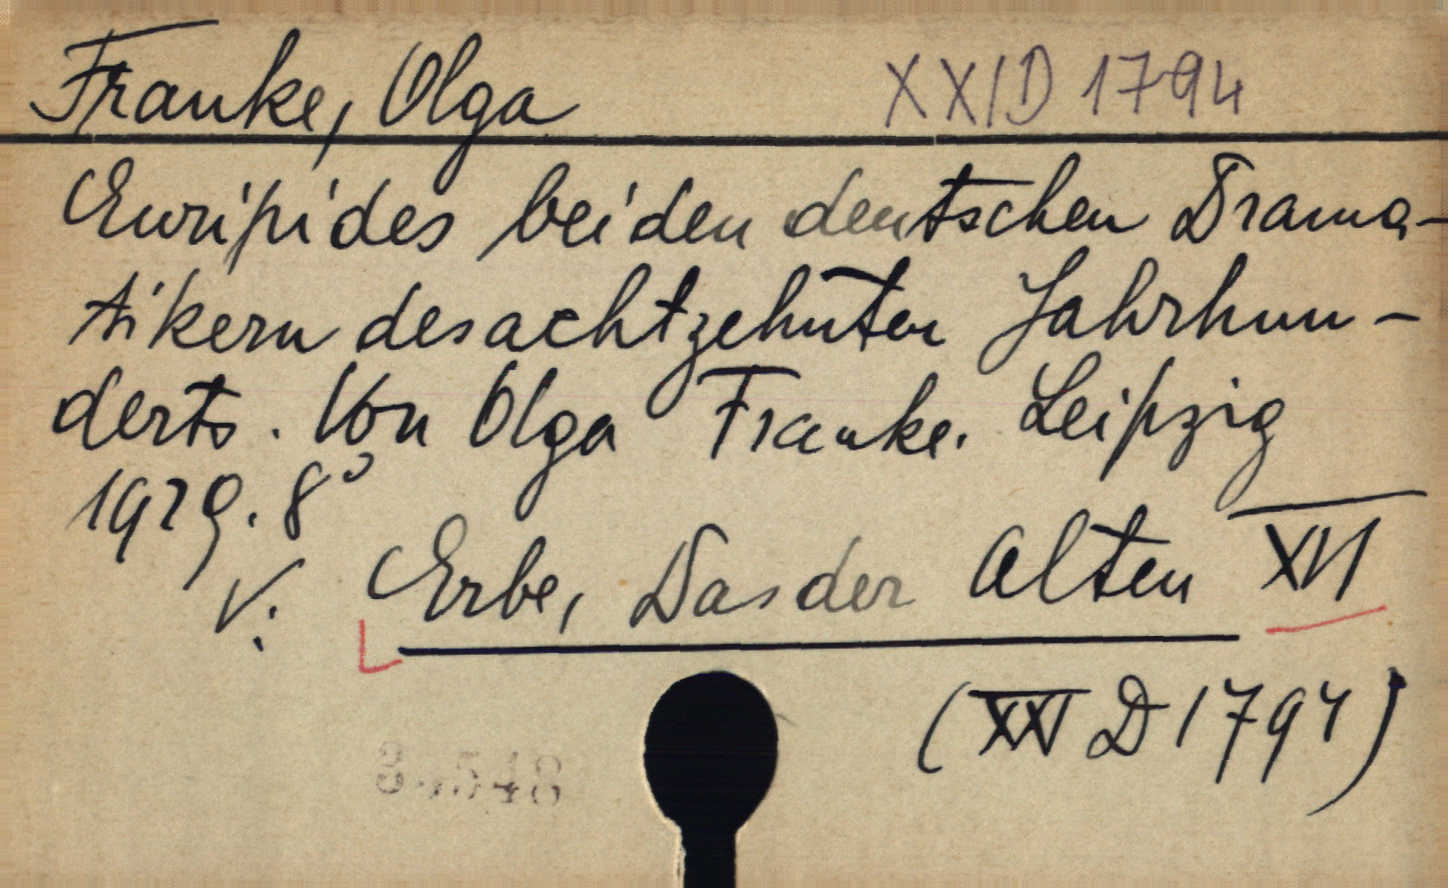 Franke, Olga XXID 1794
Euripides bei den deutschen Drama-
tikern des achtzehnten Jahrhun-
derts. Von Olga Franke. Leipzig
1929. 8°
V: Erbe, Das der Alten XVI
(XXI D 1794)